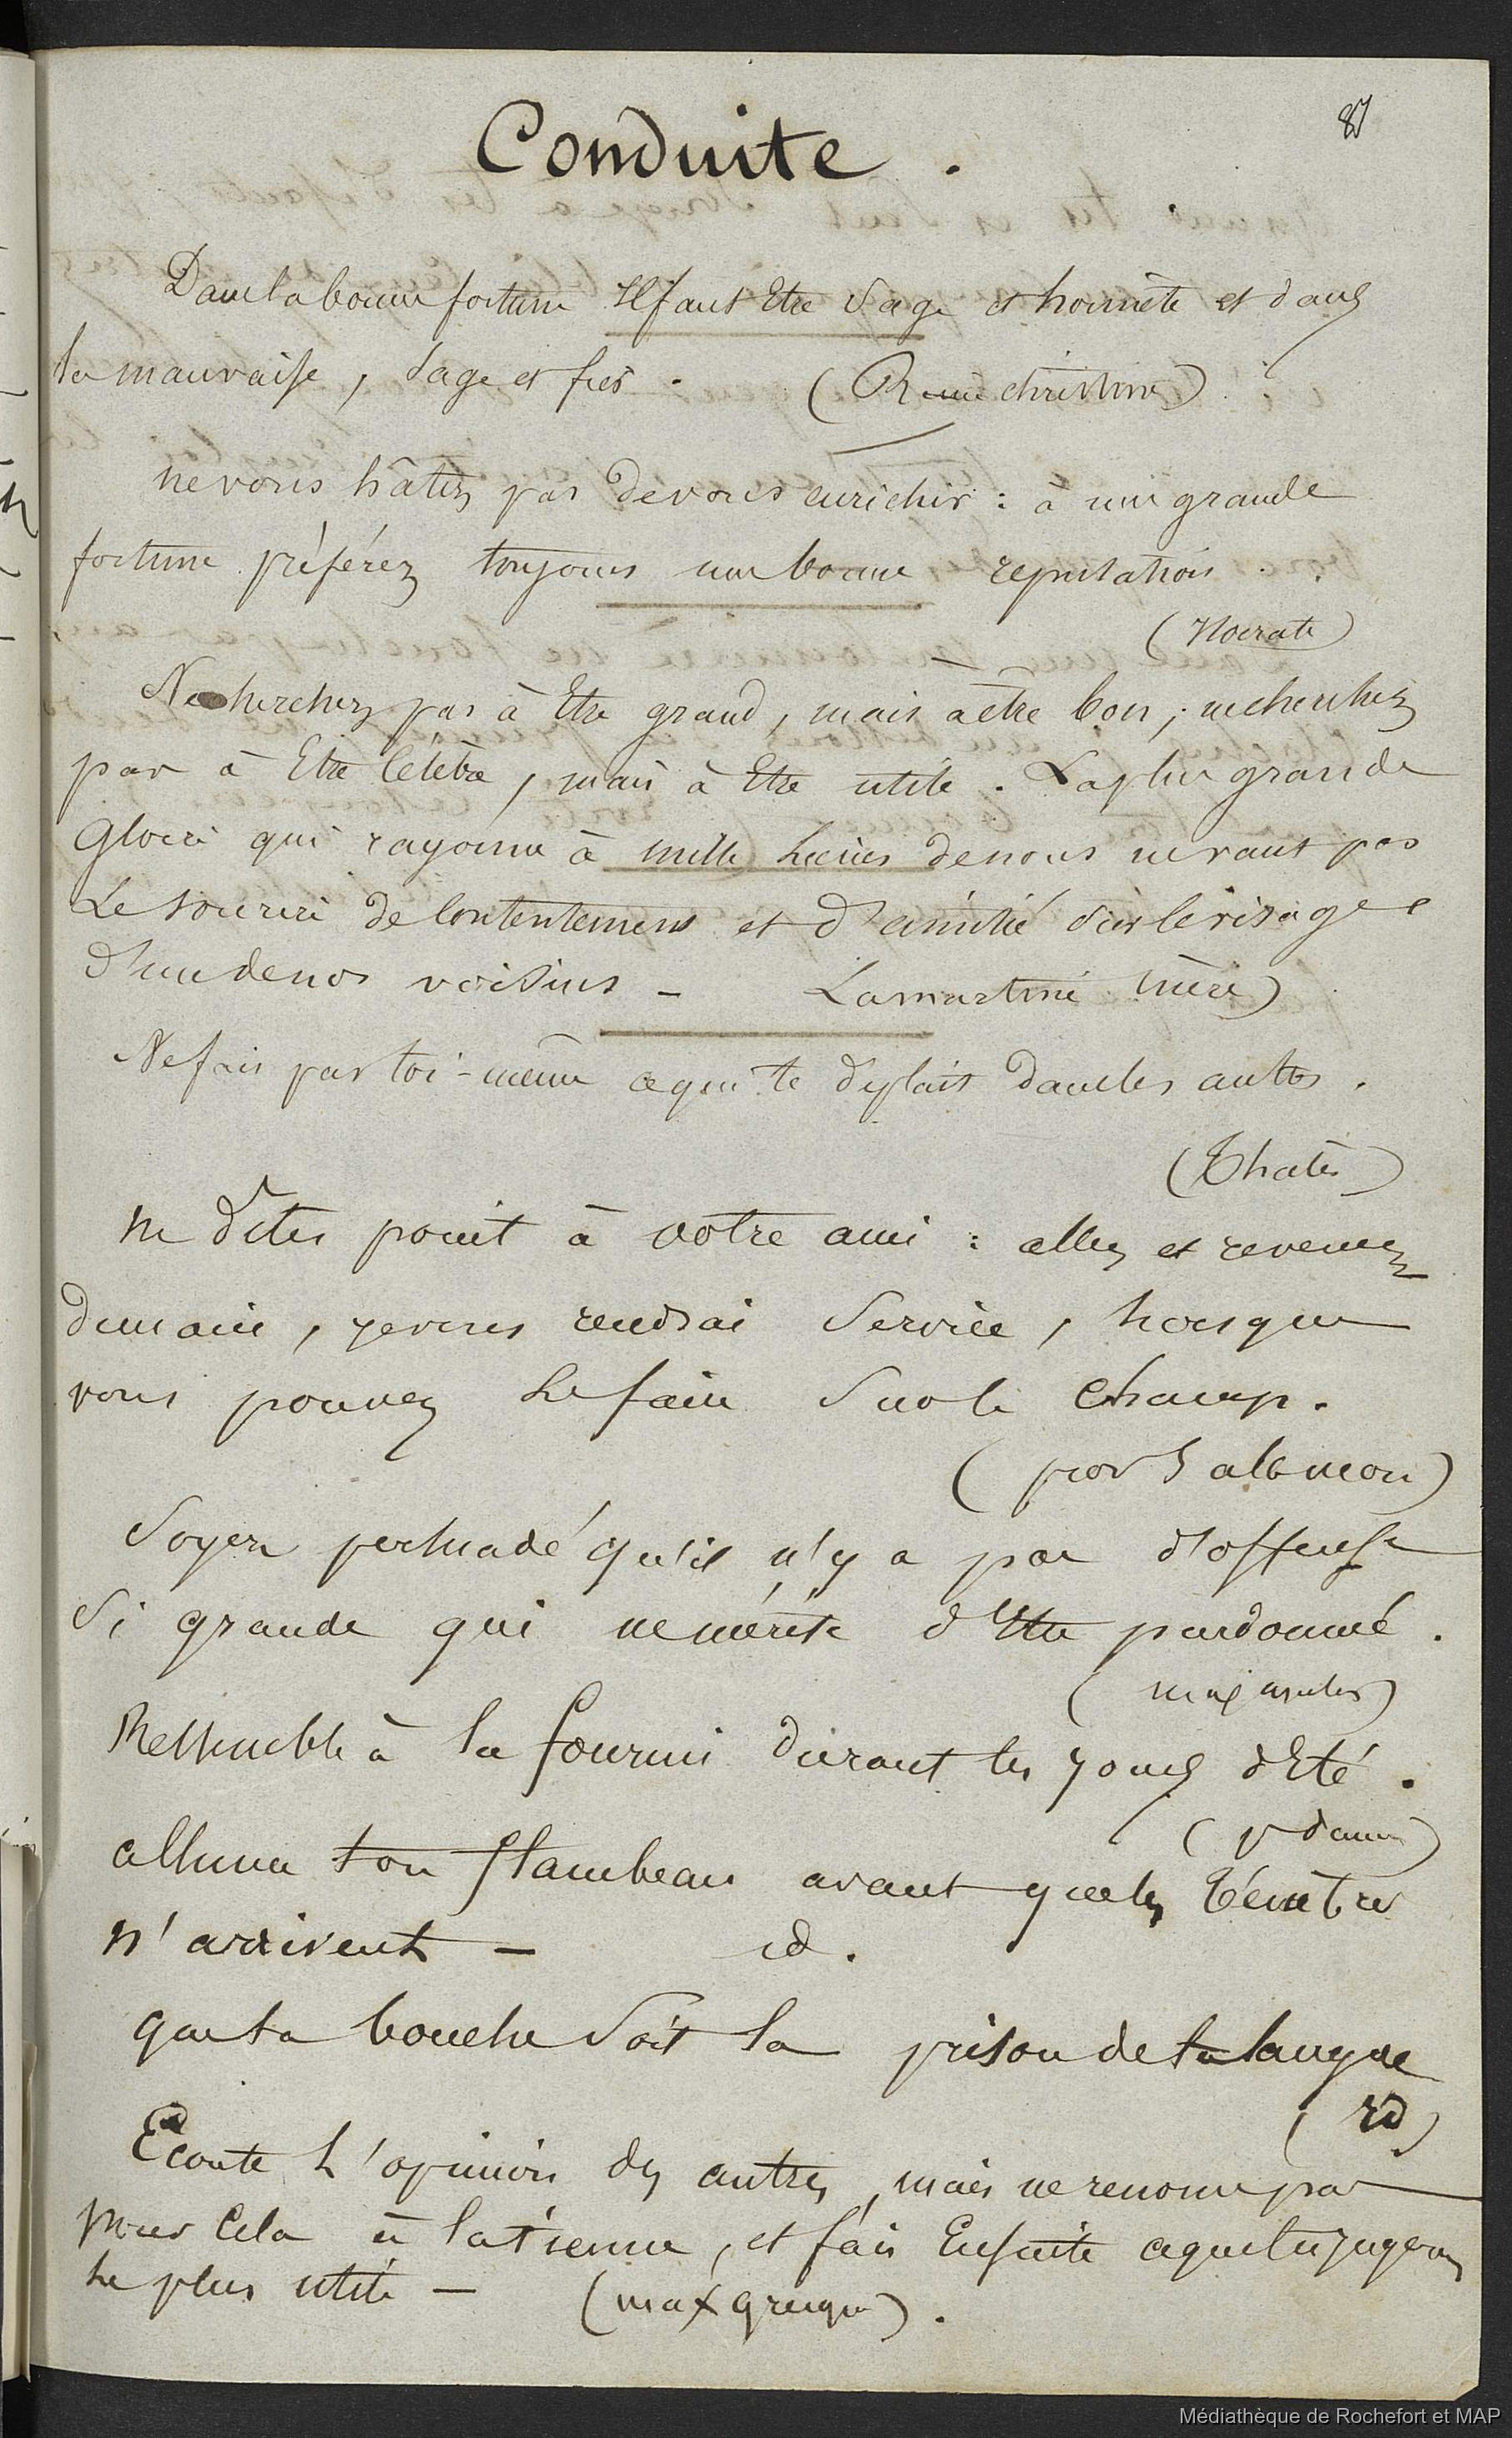 87
Conduite.
Dans la bonne fortune Il faut Etre sage et honnête et dans
la mauvaise, sage et fier. (Reine christine)
ne vous hâtez pas de vous enrichir : à une grande
fortune préférez toujours une bonne reputation.
(Isocrate)
Ne cherchez pas à Etre grand, mais à être bon ; ne cherchez
pas à Etre célèbre, mais à Etre utile. La plus grande
gloire qui rayonne à mille lieues de nous ne vaut pas
le sourire de contentement et d'amitié sur le visage
d'un de nos voisins - Lamartine (mère)
Ne fais pas toi-même ce qui te déplait dans les autres.
(Thalès)
ne dites point à votre ami : allez et revenez
demain, je vous rendrai service, lorsque
vous pouvez le faire sur le champ.
(prov Salomon)
Soyez persuadé qu'il n'y a pas d'offense
si grande qui ne mérite d'Etre pardonné.
Ressemble à la fourmi durant les jours d'Eté.
allume ton flambeau avant que les ténèbres
n'arrivent - id.
que ta bouche soit la prison de ta langue
(id)
Ecoute l'opinion des autres, mais ne renonce pas
pour cela à la tienne, et fais Ensuite ce que tu jugeras
le plus utile - (max grecque).
Médiathèque de Rochefort et MAP